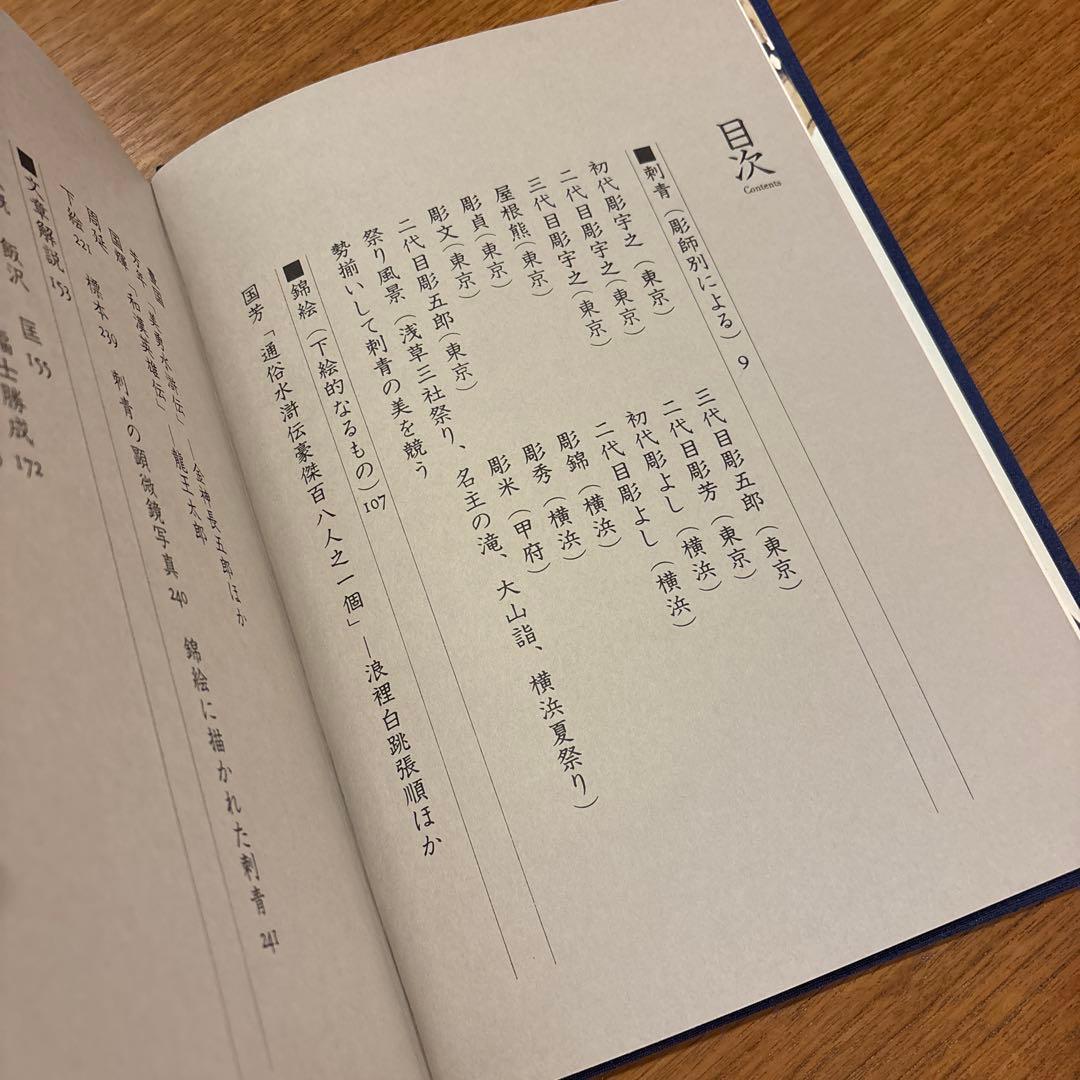 目次
Contents
■刺青（彫師別による）9
初代彫宇之（東京）
二代目彫宇之（東京）
三代目彫宇之（東京）
屋根熊（東京）
彫貞（東京）
彫文（東京）
二代目彫五郎（東京）
三代目彫五郎（東京）
二代目彫芳（東京）
初代彫よし（横浜）
二代目彫よし（横浜）
彫錦（横浜）
彫秀（横浜）
彫米（甲府）
祭り風景（浅草三社祭り、名主の滝、大山詣、横浜夏祭り）
勢揃いして刺青の美を競う
■錦絵（下絵的なるもの）107
国芳「通俗水滸伝豪傑百八人之一個」―浪裡白跳張順ほか
―金神長五郎ほか
国輝「和漢英雄伝」―龍王太郎
下絵221 標本239 刺青の顕微鏡写真240 錦絵に描かれた刺青241
■文章解説153
飯沢 匡155
福士勝成172